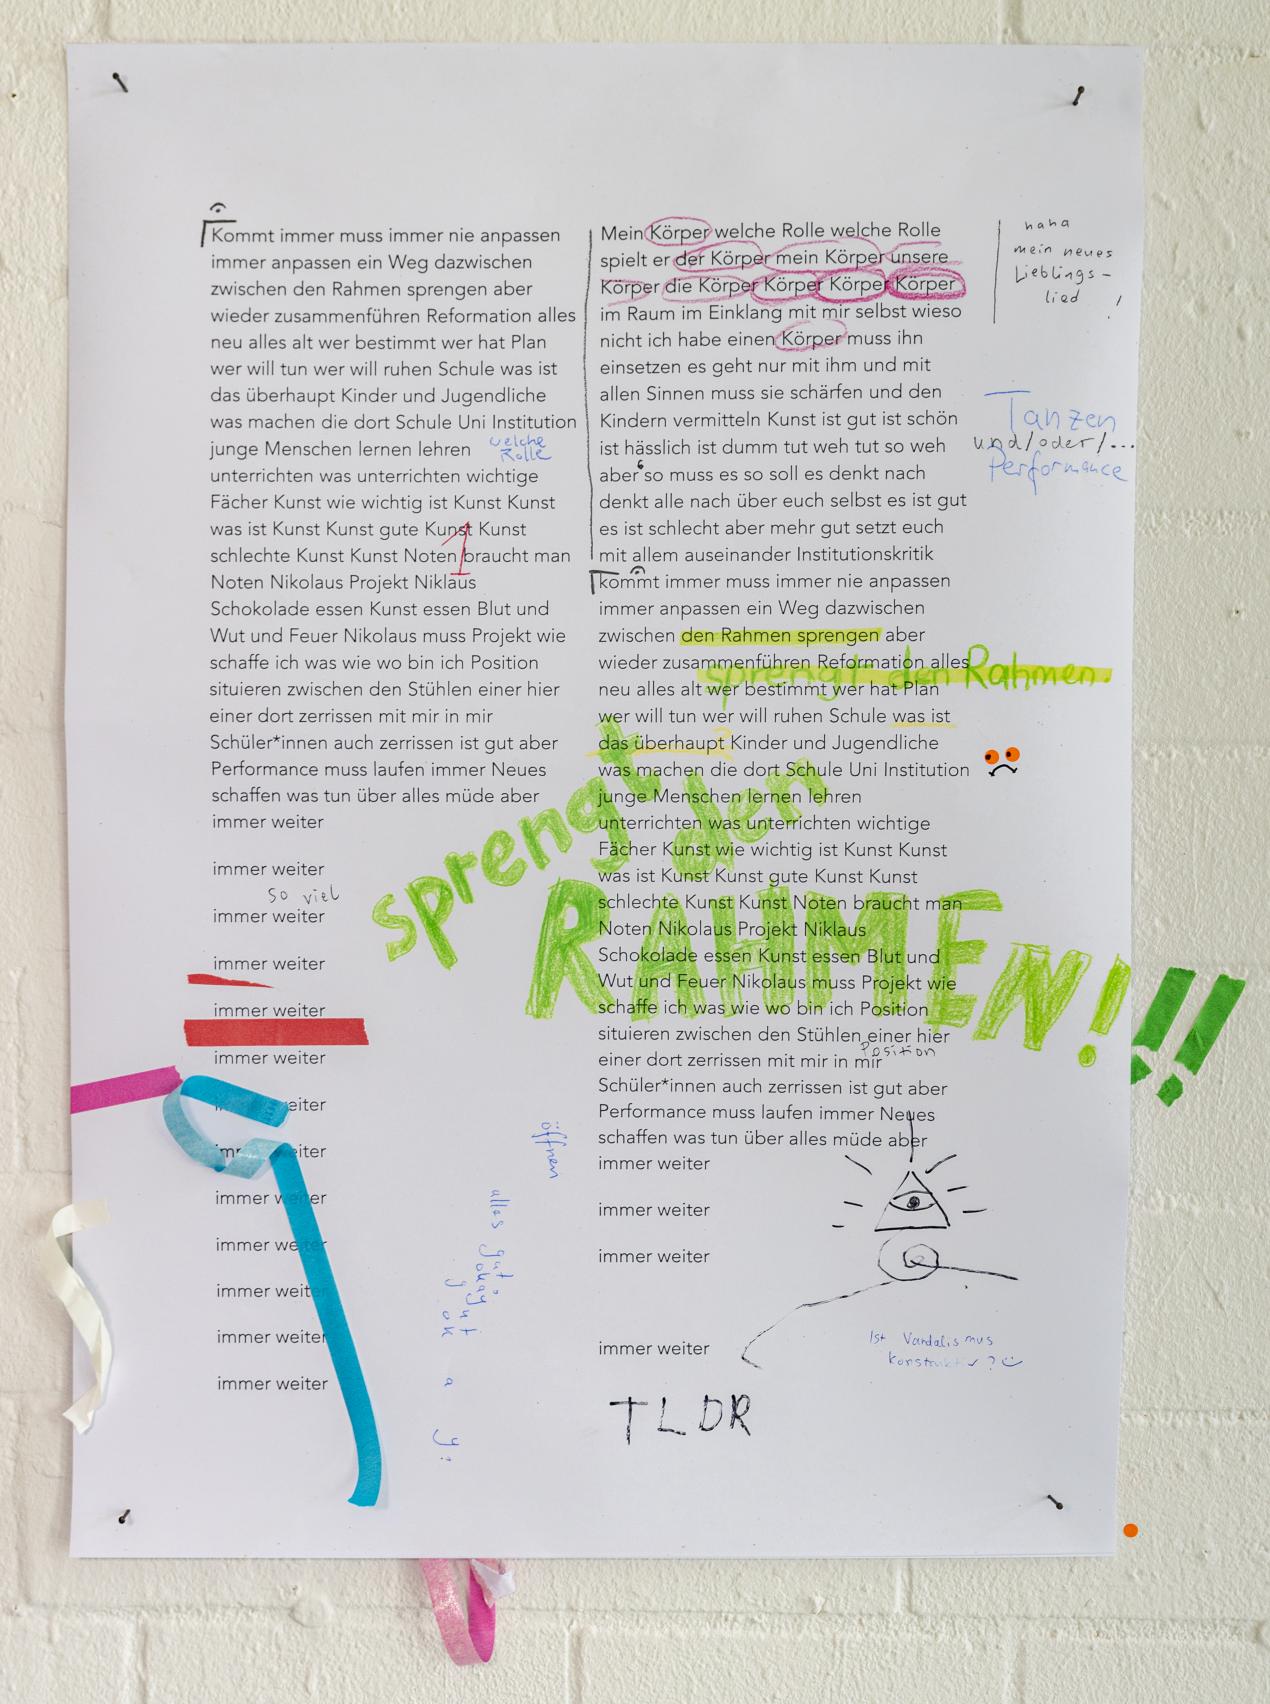 Kommt immer muss immer nie anpassen
immer anpassen ein Weg dazwischen
zwischen den Rahmen sprengen aber
wieder zusammenführen Reformation alles
neu alles alt wer bestimmt wer hat Plan
wer will tun wer will ruhen Schule was ist
das überhaupt Kinder und Jugendliche
was machen die dort Schule Uni Institution
junge Menschen lernen lehren
welche
Rolle
unterrichten was unterrichten wichtige
Fächer Kunst wie wichtig ist Kunst Kunst
was ist Kunst Kunst gute Kunst Kunst
1
schlechte Kunst Kunst Noten braucht man
Noten Nikolaus Projekt Niklaus
Schokolade essen Kunst essen Blut und
Wut und Feuer Nikolaus muss Projekt wie
schaffe ich was wie wo bin ich Position
situieren zwischen den Stühlen einer hier
einer dort zerrissen mit mir in mir
Schüler*innen auch zerrissen ist gut aber
Performance muss laufen immer Neues
schaffen was tun über alles müde aber
immer weiter
immer weiter
so viel
immer weiter
immer weiter
immer weiter
immer weiter
eiter
imm iter
immer weiter
immer weiter
immer weiter
immer weiter
immer weiter
öffnen
alles gut,
okay
gut
ok
a
y:
Mein Körper welche Rolle welche Rolle
spielt er der Körper mein Körper unsere
Körper die Körper Körper Körper Körper
im Raum im Einklang mit mir selbst wieso
nicht ich habe einen Körper muss ihn
einsetzen es geht nur mit ihm und mit
allen Sinnen muss sie schärfen und den
Kindern vermitteln Kunst ist gut ist schön
ist hässlich ist dumm tut weh tut so weh
aber so muss es so soll es denkt nach
denkt alle nach über euch selbst es ist gut
es ist schlecht aber mehr gut setzt euch
mit allem auseinander Institutionskritik
kommt immer muss immer nie anpassen
immer anpassen ein Weg dazwischen
zwischen den Rahmen sprengen aber
wieder zusammenführen Reformation alles
sprengt den Rahmen
neu alles alt wer bestimmt wer hat Plan
wer will tun wer will ruhen Schule was ist
das überhaupt? Kinder und Jugendliche
was machen die dort Schule Uni Institution
junge Menschen lernen lehren
unterrichten was unterrichten wichtige
Fächer Kunst wie wichtig ist Kunst Kunst
was ist Kunst Kunst gute Kunst Kunst
schlechte Kunst Kunst Noten braucht man
Noten Nikolaus Projekt Niklaus
Schokolade essen Kunst essen Blut und
Wut und Feuer Nikolaus muss Projekt wie
schaffe ich was wie wo bin ich Position
situieren zwischen den Stühlen einer hier
Position
einer dort zerrissen mit mir in mir
Schüler*innen auch zerrissen ist gut aber
Performance muss laufen immer Neues
schaffen was tun über alles müde aber
immer weiter
immer weiter
immer weiter
immer weiter
sprengt
den
RAHMEN!!!
haha
mein neues
Lieblings-
lied !
Tanzen
und/oder/...
Performance
Ist Vandalismus
konstruktiv?
TLDR